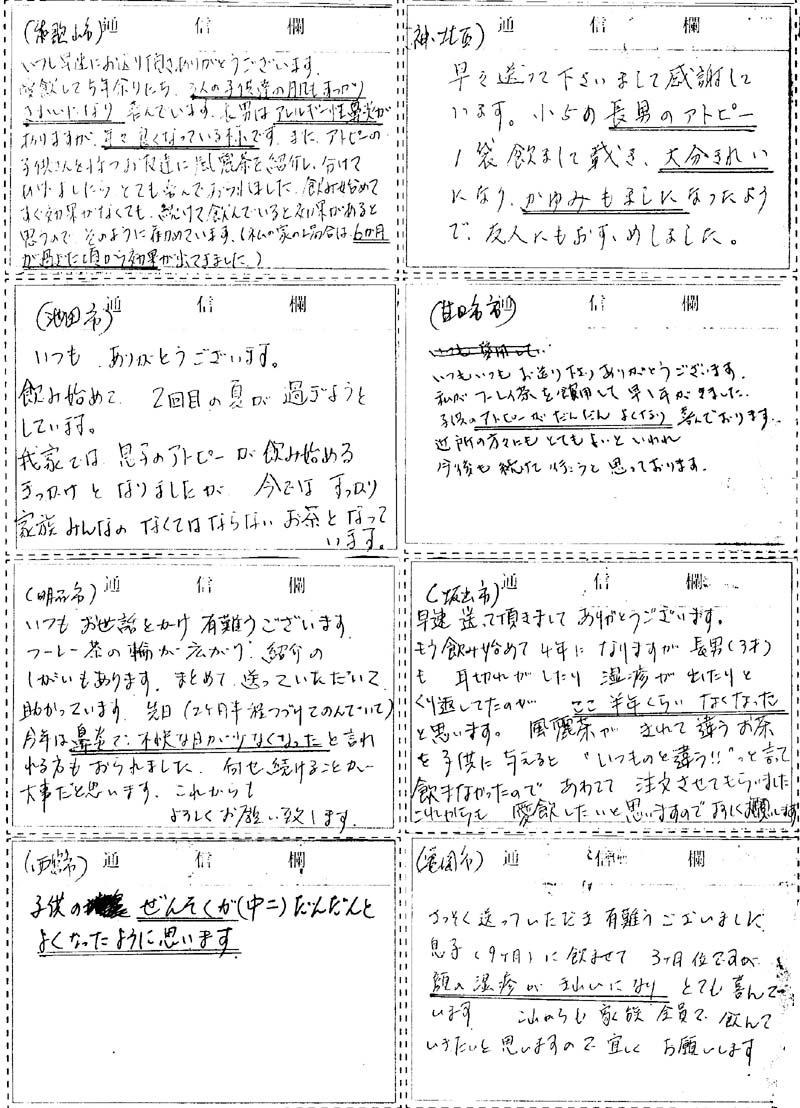 (和歌山市) 通信欄
いつも早速にお送り頂きありがとうございます。
愛飲して5年余りたち、3人の子供達の肌もすっかり
きれいになり 喜んでいます。長男はアレルギー性鼻炎が
ありますが、年々良くなっている様です。また、アトピーの
子供さんを持つお友達に風麗茶を紹介し、分けて
あげましたら とても喜んでおられました。飲み始めて
すぐ効果がなくても、続けて飲んでいると効果があると
思うので、そのように薦めています。(私の家の場合は6か月
が過ぎた頃から効果が出てきました。)
通信欄
早々送って下さいまして感謝して
います。小5の長男のアトピー
1袋飲まして戴き、大分きれい
になり、かゆみもましになったよう
で、友人にもおすゝめしました。
(池田市) 通信欄
いつも ありがとうございます。
飲み始めて、2回目の夏が過ぎようと
しています。
我家では、息子のアトピーが飲み始める
きっかけとなりましたが、今では すっかり
家族みんなの なくてはならない お茶となって
います。
(廿日市市) 通信欄
いつもいつも お送り下さりありがとうございます。
私がフーレイ茶を愛用して早1年がきました。
子供のアトピーがだんだんよくなり 喜んでおります。
近所の方々にも とてもよいといわれ
今後も続けて行こうと思っております。
(明石市) 通信欄
いつもお世話をかけ 有難うございます
フーレー茶の輪が広がり、紹介の
しがいもあります。まとめて送っていただいて
助かっています。先日(2ヶ月半程つづけてのんでいて)
今年は鼻炎で、不快な日が少なくなったと言われ
れる方も おられました。何せ、続けることが
大事だと思います。これからも
よろしくお願い致します。
(坂出市) 通信欄
早速送って頂きまして ありがとうございます。
もう飲み始めて4年になりますが 長男(3才)
も 耳切れがしたり 湿疹が出たりと
くり返してたのが ここ半年くらい なくなった
と思います。風麗茶が きれて違うお茶
を子供に与えると "いつものと違う!!"っと言って
飲まなかったので あわてて 注文させてもらいました
これからも 愛飲したいと思いますので よろしくお願いします
通信欄
子供の ぜんそくが(中二)だんだんと
よくなったように思います
通信欄
さっそく送っていただき 有難うございました。
息子(9ヶ月)に飲ませて 3ヶ月位ですが
顔の湿疹が きれいになり とても喜んで
います これからも 家族全員で 飲んで
いきたいと思いますので 宜しく お願いします